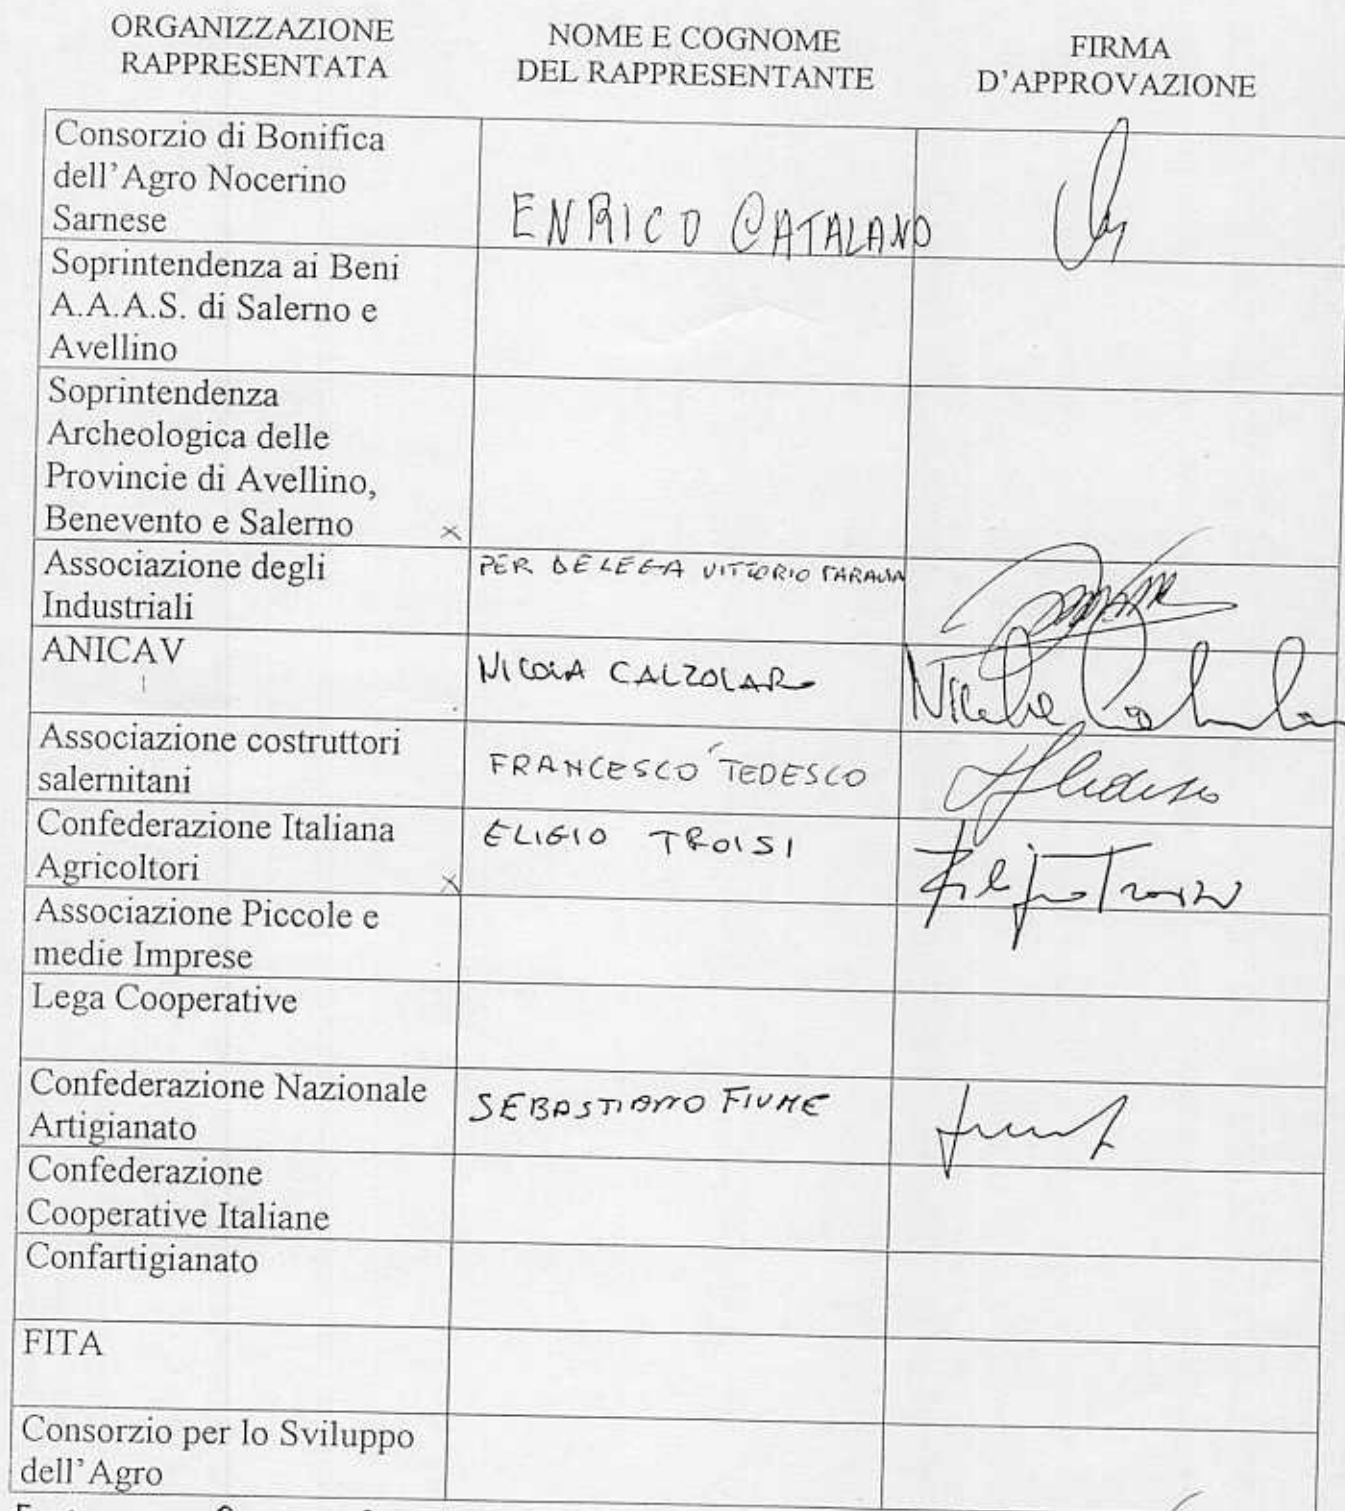 ORGANIZZAZIONE
RAPPRESENTATA
NOME E COGNOME
DEL RAPPRESENTANTE
FIRMA
D'APPROVAZIONE
Consorzio di Bonifica
dell'Agro Nocerino
Sarnese
ENRICO CATALANO
Soprintendenza ai Beni
A.A.A.S. di Salerno e
Avellino
Soprintendenza
Archeologica delle
Provincie di Avellino,
Benevento e Salerno
Associazione degli
Industriali
PER DELEGA VITTORIO
ANICAV
NICOLA CALZOLARO
Associazione costruttori
salernitani
FRANCESCO TEDESCO
Confederazione Italiana
Agricoltori
ELIGIO TROISI
Associazione Piccole e
medie Imprese
Lega Cooperative
Confederazione Nazionale
Artigianato
SEBASTIANO FIUME
Confederazione
Cooperative Italiane
Confartigianato
FITA
Consorzio per lo Sviluppo
dell'Agro